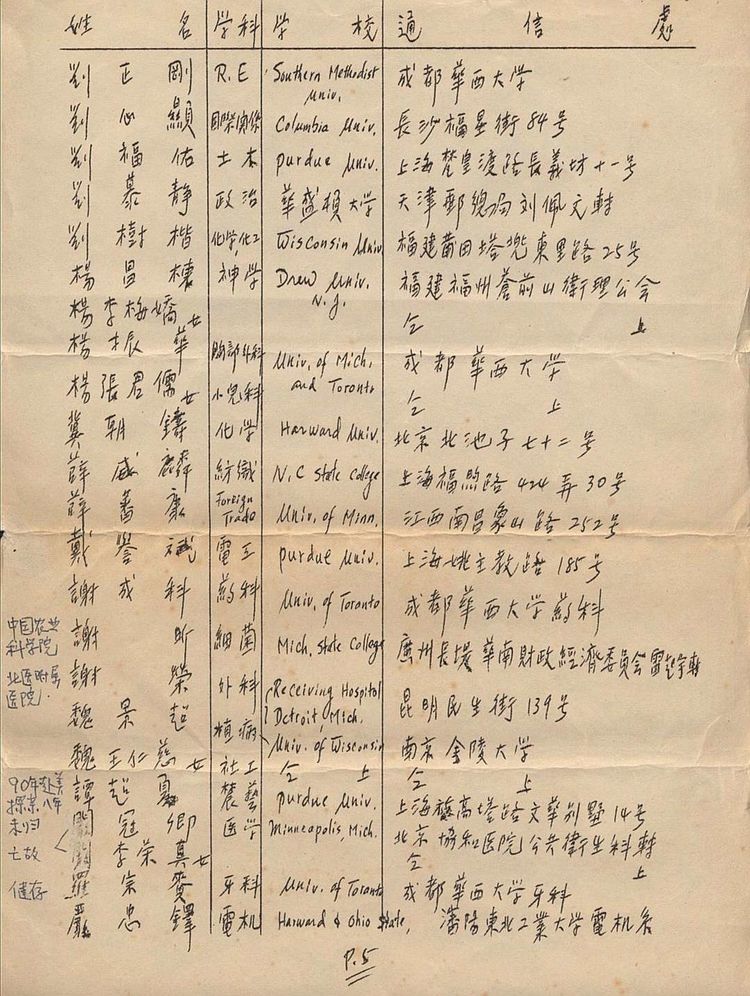 姓 名 学科 学 校 通 信 處
劉 正 剛 R.E Southern Methodist Univ. 成都華西大学
劉 心 顯 国際関係 Columbia Univ. 長沙福星街84号
劉 福 佑 土木 Purdue Univ. 上海梵皇渡路長義坊十一号
劉 慕 静 政治 華盛頓大学 天津郵總局刘佩文轉
劉 樹 楷 化学,化工 Wisconsin Univ. 福建莆田塔兜東里路25号
楊 昌 棟 神学 Drew Univ. N.J. 福建福州蒼前山衛理公会
楊李梅嬌女 仝 上
楊 振 華 胸部外科 Univ. of Mich. and Toronto 成都華西大学
楊張君儒女 小兒科 仝 上
冀 朝 鑄 化学 Harward Univ. 北京北池子七十二号
薛 威 麟 紡織 N.C State College 上海福煦路424弄30号
薛 蕃 康 Foreign Trade Univ. of Minn. 江西南昌象山路252号
戴 譽 電工 Purdue Univ. 上海姚主教路185号
謝 成 科 葯科 Univ. of Toronto 成都華西大学葯科
中国农业科学院
謝 昕 細菌 Mich. State College 廣州長堤華南財政經濟委員会雷
北医附属医院.
謝 榮 外科 Receiving Hospital Detroit, Mich. 昆明民生街139号
魏 景 超 植病 Univ. of Wisconsin 南京金陵大学
魏王仁慈女 社工 仝 上 仝 上
90年赴美探亲八年未归
譚 超 夏 農藝 Purdue Univ. 上海旗高塔路文華別墅14号
亡故
關 冠 卿 医学 Minneapolis, Mich. 北京協和医院公共衛生科轉
關李榮真女 仝 上
健存
羅 宗 賚 牙科 Univ. of Toronto 成都華西大学牙科
嚴 忠 鐸 電机 Harward & Ohio State, 瀋陽東北工業大学電机系
P.5